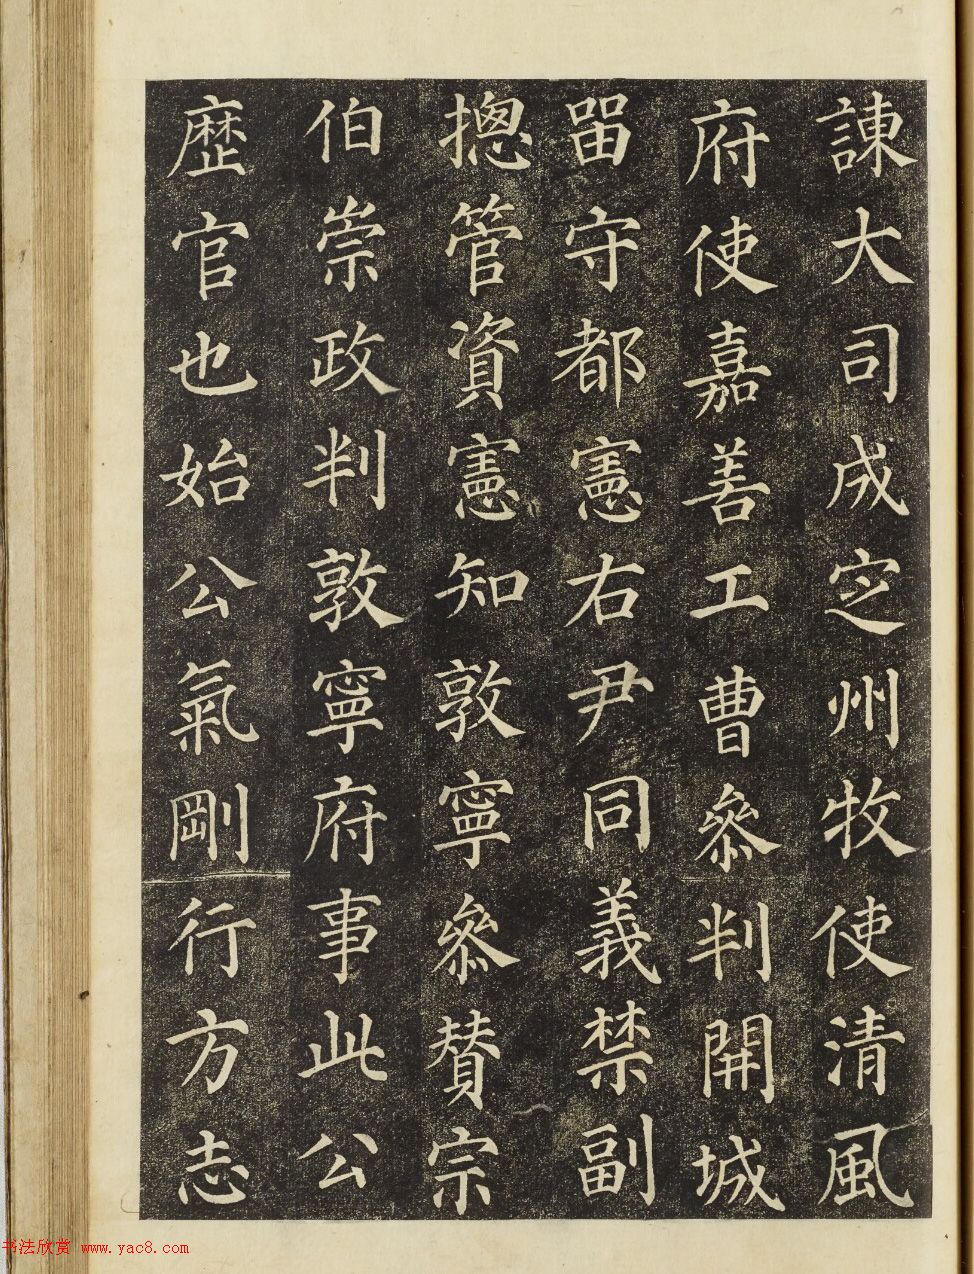 諫大司成定州牧使清風
府使嘉善工曹叅判開城
留守都憲右尹同義禁副
摠管資憲知敦寧叅贊宗
伯崇政判敦寧府事此公
歷官也始公氣剛行方志
书法欣赏 www.yac8.com